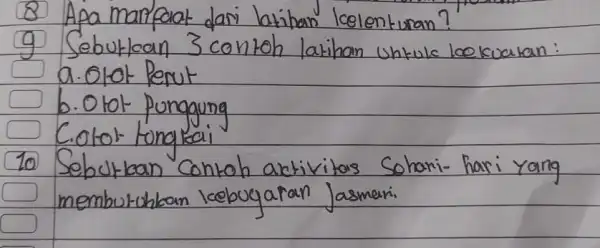 8 Apa manfaat dari latihan kelenturan?
9 Seburkan 3 contoh latihan untuk kekuatan:
a. Otot Perut
b. Otot Punggung
C. otot tongkai
10 Seburkan Contoh aktivitas Sehari-hari yang
memburuhkan kebugaran Jasmani.